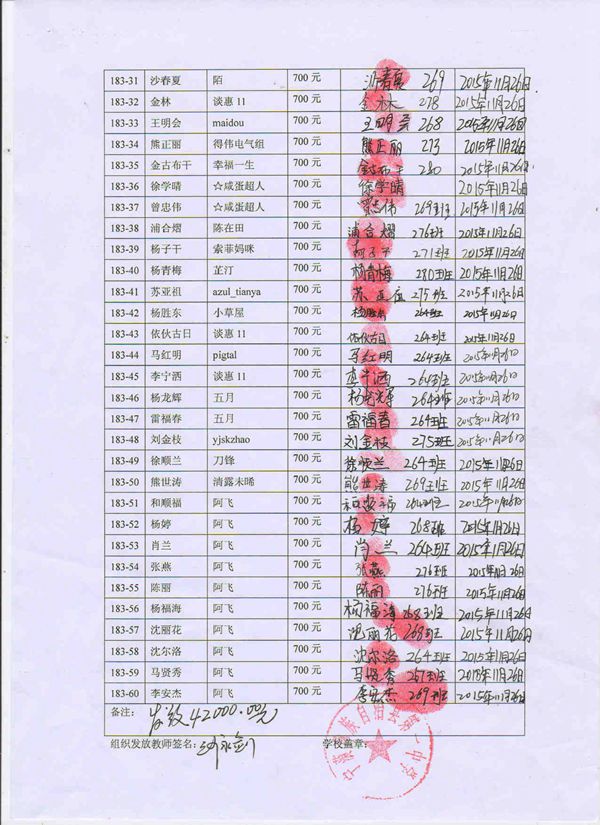 183-31 沙春夏 陌 700元 沙春夏 269 2015年11月26日
183-32 金林 谈惠11 700元 金林 278 2015年11月26日
183-33 王明会 maidou 700元 王明会 268 2015年11月26日
183-34 熊正丽 得伟电气组 700元 熊正丽 273 2015年11月26日
183-35 金古布干 幸福一生 700元 金古布干 280 2015年11月26日
183-36 徐学晴 ☆咸蛋超人 700元 徐学晴 2015年11月26日
183-37 曾忠伟 ☆咸蛋超人 700元 曾忠伟 269班 2015年11月26日
183-38 浦合熠 陈在田 700元 浦合熠 276班 2015年11月26日
183-39 杨子干 索菲妈咪 700元 杨子干 271班 2015年11月26日
183-40 杨青梅 芷汀 700元 杨青梅 280班 2015年11月26日
183-41 苏亚祖 azul_tianya 700元 苏 275班 2015年11月26日
183-42 杨胜东 小草屋 700元 杨胜东 264班 2015年11月26日
183-43 依伙古日 谈惠11 700元 依伙古日 264班 2015年11月26日
183-44 马红明 pigtal 700元 马红明 264班 2015年11月26日
183-45 李宁洒 谈惠11 700元 李宁洒 264班 2015年11月26日
183-46 杨龙辉 五月 700元 杨龙辉 264班 2015年11月26日
183-47 雷福春 五月 700元 雷福春 264班 2015年11月26日
183-48 刘金枝 yjskzhao 700元 刘金枝 275班 2015年11月26日
183-49 徐顺兰 刀锋 700元 徐顺兰 264班 2015年11月26日
183-50 熊世涛 清露未晞 700元 熊世涛 269班 2015年11月26日
183-51 和顺福 阿飞 700元 和顺福 264班 2015年11月26日
183-52 杨婷 阿飞 700元 杨婷 268班 2015年11月26日
183-53 肖兰 阿飞 700元 肖兰 264班 2015年11月26日
183-54 张燕 阿飞 700元 张燕 276班 2015年11月26日
183-55 陈丽 阿飞 700元 陈丽 276班 2015年11月26日
183-56 杨福海 阿飞 700元 杨福海 268班 2015年11月26日
183-57 沈丽花 阿飞 700元 沈丽花 268班 2015年11月26日
183-58 沈尔洛 阿飞 700元 沈尔洛 264班 2015年11月26日
183-59 马贤秀 阿飞 700元 马贤秀 267班 2015年11月26日
183-60 李安杰 阿飞 700元 李安杰 269班 2015年11月26日
备注: 发放42000.00元
组织发放教师签名: 学校盖章:
宁蒗彝族自治县第一中学